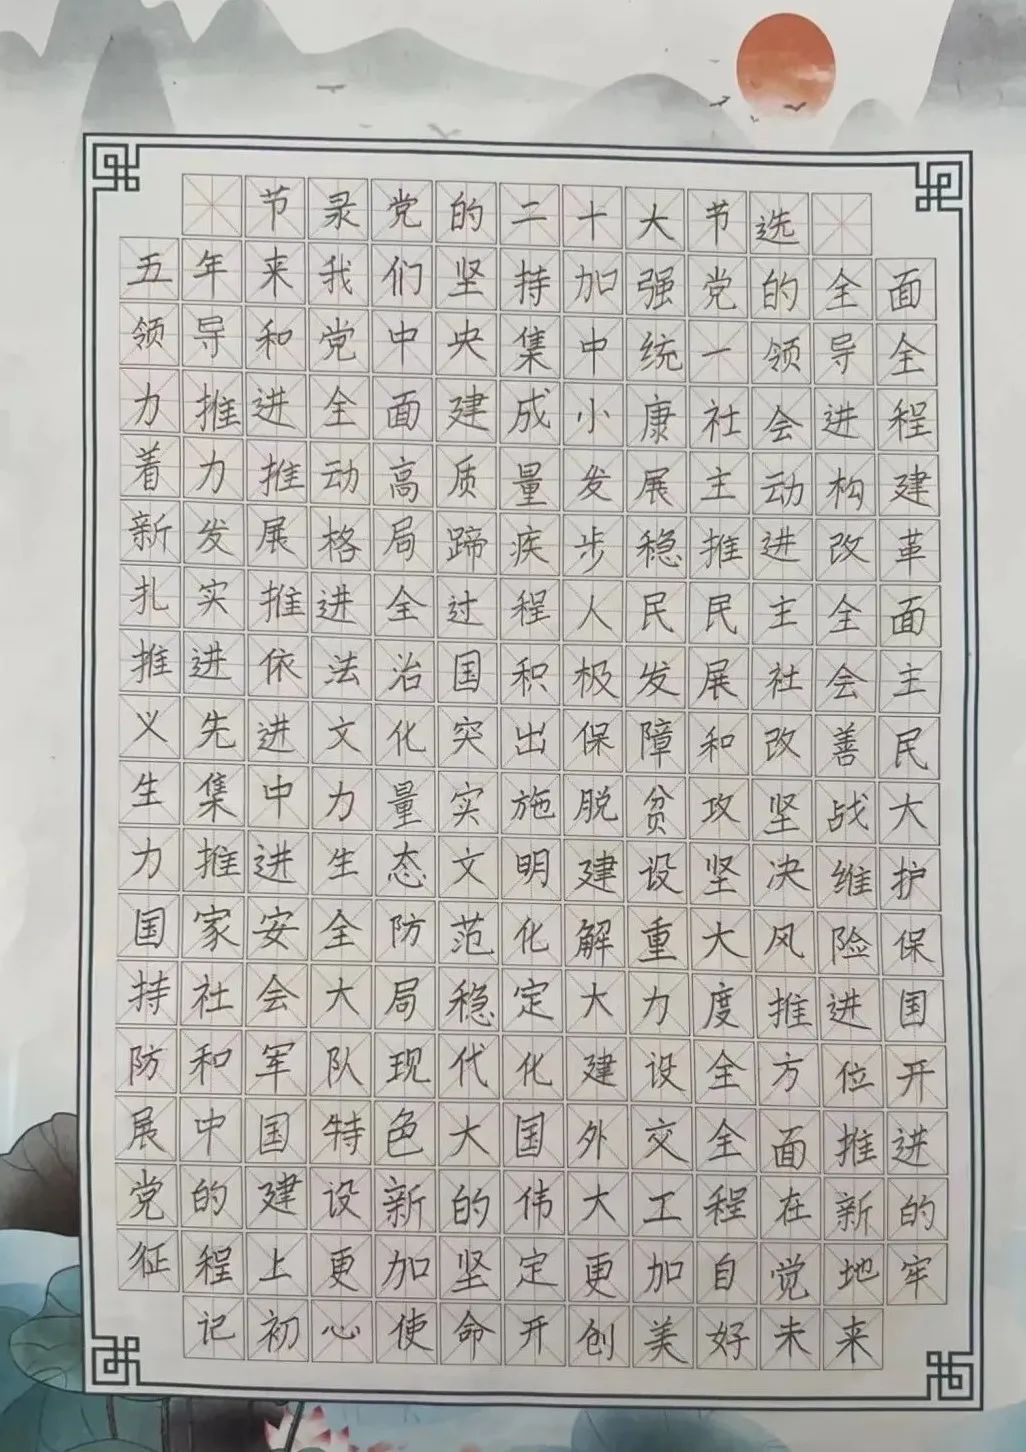 节录党的二十大节选
五年来我们坚持加强党的全面
领导和党中央集中统一领导全
力推进全面建成小康社会进程
着力推动高质量发展主动构建
新发展格局蹄疾步稳推进改革
扎实推进全过程人民民主全面
推进依法治国积极发展社会主
义先进文化突出保障和改善民
生集中力量实施脱贫攻坚战大
力推进生态文明建设坚决维护
国家安全防范化解重大风险保
持社会大局稳定大力度推进国
防和军队现代化建设全方位开
展中国特色大国外交全面推进
党的建设新的伟大工程在新的
征程上更加坚定更加自觉地牢
记初心使命开创美好未来